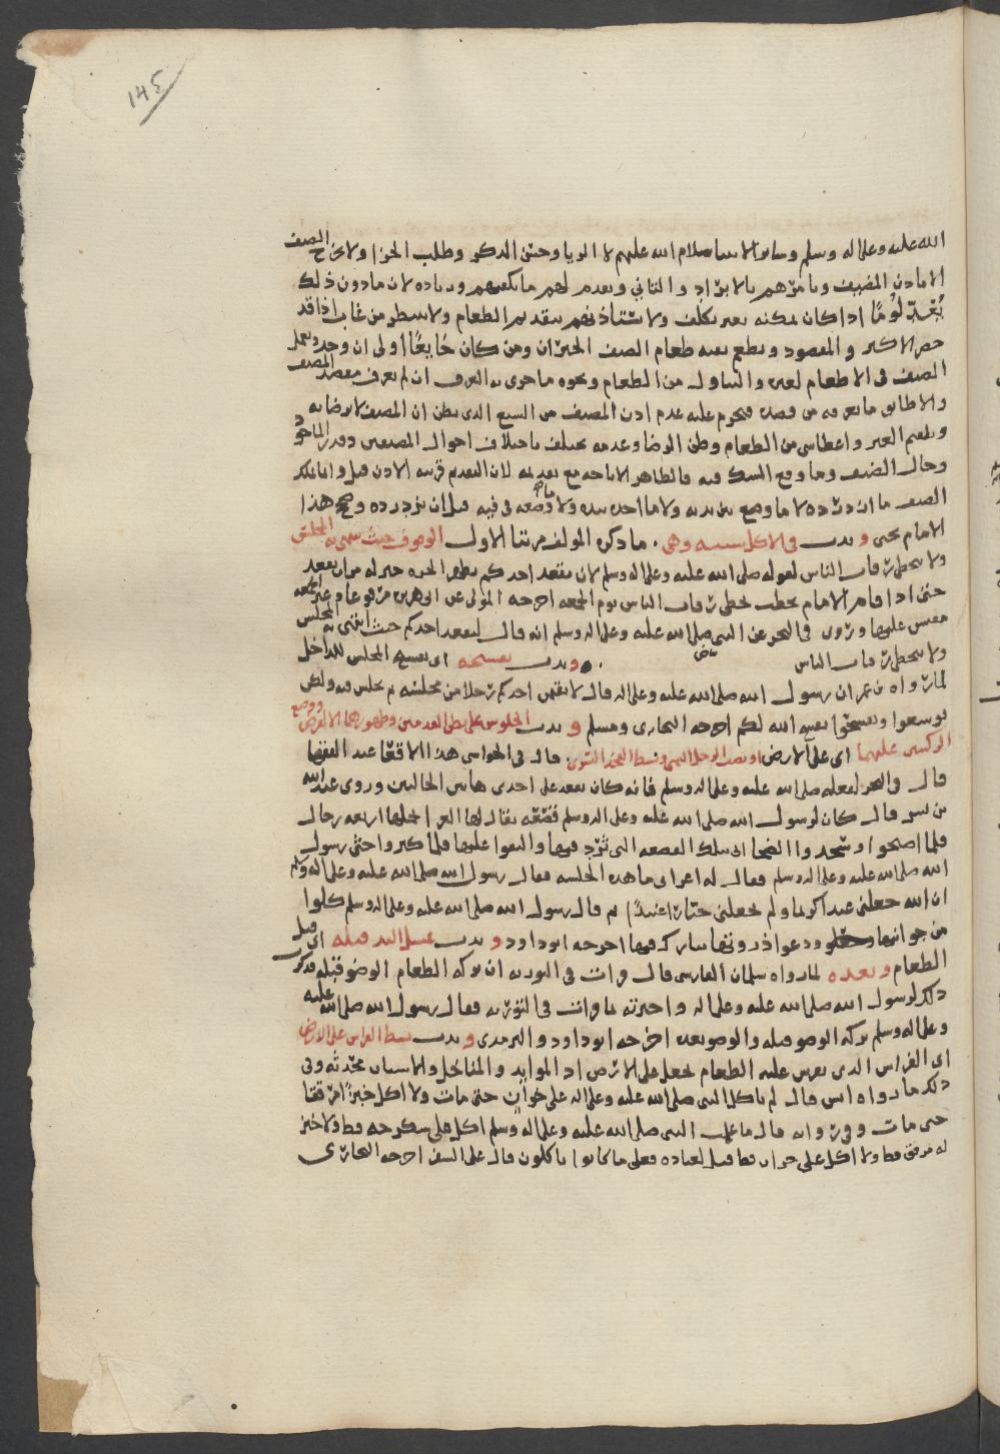 ١٤٥
الله عليه وعلى اله وسلم وسائر الانبيا سلام الله عليهم لا الريا وحسن الذكر وطلب الجزا ولا يخرج الضيف
الا باذن المضيف ويامرهم بالابراد والتاني ويقدم لهم ما يكفيهم وزياده لان ما دون ذلك
يُعَدّ لُومًا اذا كان يمكنه بغير تكلف ولا يستاذنهم بتقديم الطعام ولا ينتظر من غاب اذا قد
حضر الاكثر والمقصود ويطعم بقيه طعام الضيف الجيران ومن كان جَايعًا اولى ان وجد ويعمل
الضيف في الاطعام لغيره والتناول من الطعام ونحوه ما جرى به العرف ان لم يعرف مقصد المضيف
والا طابق ما يعرفه من قصده فيحرم عليه عدم اذن المضيف من الشبع الذي يظن ان المضيف لا يرضا به
وتلقيم الغير واعطا شي من الطعام وظن الرضا وعدمه يختلف باختلاف احوال المضيفين وقدر الماخوذ
وحال الضيف وما وقع الشك فيه فالظاهر الاباحه مع تقديمه لان التقديم قرينه الاذن قيل وانما يملك
الضيف ما ازدرده لا ما وضع بين يديه ولا ما اخذ بيده ولا ما وضعه في فيه قبل ان يزدرده وصحح هذا
الامام يحيى وندب في الاكل سننه وهي . ما ذكره المولف مرتبا الاول الوقوف حيث ينتهي به المجلس
ولا يتخطى رقاب الناس لقوله صلى الله عليه وعلى اله وسلم لان يقعد احدكم بظهر الحره خير له من ان يقعد
حتى اذا قام الامام يخطب تخطى رقاب الناس يوم الجمعه اخرجه الموطى عن ابي هريره مرفوعا وغير الجمعه
مقيس عليها وروى في البحر عن النبي صلى الله عليه وعلى اله وسلم انه قال ليقعد احدكم حيث انتهى به المجلس
ولا يتخطى رقاب الناس . وندب تفسحه اي تفسيح المجلس للداخل
لما رواه بن عمر ان رسول الله صلى الله عليه وعلى اله قال لا يقيمن احدكم رجلا من مجلسه ثم يجلس فيه ولكن
توسعوا وتفسحوا يفسح الله لكم اخرجه البخاري ومسلم وندب الجلوس على بطن القدمين وظهورهما الارض ووضع
الركبتين عليهما اي على الارض او نصب الرجل اليمنى وبسط الفخذ اليسرى . قال في الحواشي هذا الاقعا عند الفقها
قال والبحر لفعله صلى الله عليه وعلى اله وسلم فانه كان يقعد على احدى هاتين الحالتين وروى عبد الله
بن بسر قال كان لرسول الله صلى الله عليه وعلى اله وسلم قَصْعَه يقال لها الغرا يحملها اربعه رجال
فلما اصبحوا وسجدوا الضحا اتى بتلك القصعه التي ثُرِد فيها والتفوا عليها فلما كثروا جثى رسول
الله صلى الله عليه وعلى اله وسلم فقال له اعرابي ما هذه الجلسه فقال رسول الله صلى الله عليه وعلى اله وسلم
ان الله جعلني عبدا كريما ولم يجعلني جبارا عنيداً ثم قال رسول الله صلى الله عليه وعلى اله وسلم كلوا
من جوانبها ودعوا ذروتها يبارك فيها اخرجه ابو داود وندب غسل اليد قبله اي قبل
الطعام وبعده لما رواه سلمان الفارسي قال قرات في التوريه ان بركه الطعام الوضو قبله فذكرت
ذلك لرسول الله صلى الله عليه وعلى اله واخبرته بما قرات في التوريه فقال رسول الله صلى الله عليه
وعلى اله وسلم بركه الوضو قبله والوضو بعده اخرجه ابو داود والترمذي وندب بسط الفراش على الارض
اي الفراش الذي يفرش عليه الطعام يجعل على الارض اذ الموايد والمناخل والاشنان محدثه وفي
ذلك ما رواه انس قال لم ياكل النبي صلى الله عليه وعلى اله على خوان حتى مات ولا اكل خبزاً مرققا
حتى مات وفي روايه قال ما علمت النبي صلى الله عليه وعلى اله وسلم اكل على سكرجه قط ولا خبز
له مرقق قط ولا اكل على خوان قط قيل لقتاده فعلى ما كانوا ياكلون قال على السفر اخرجه البخاري